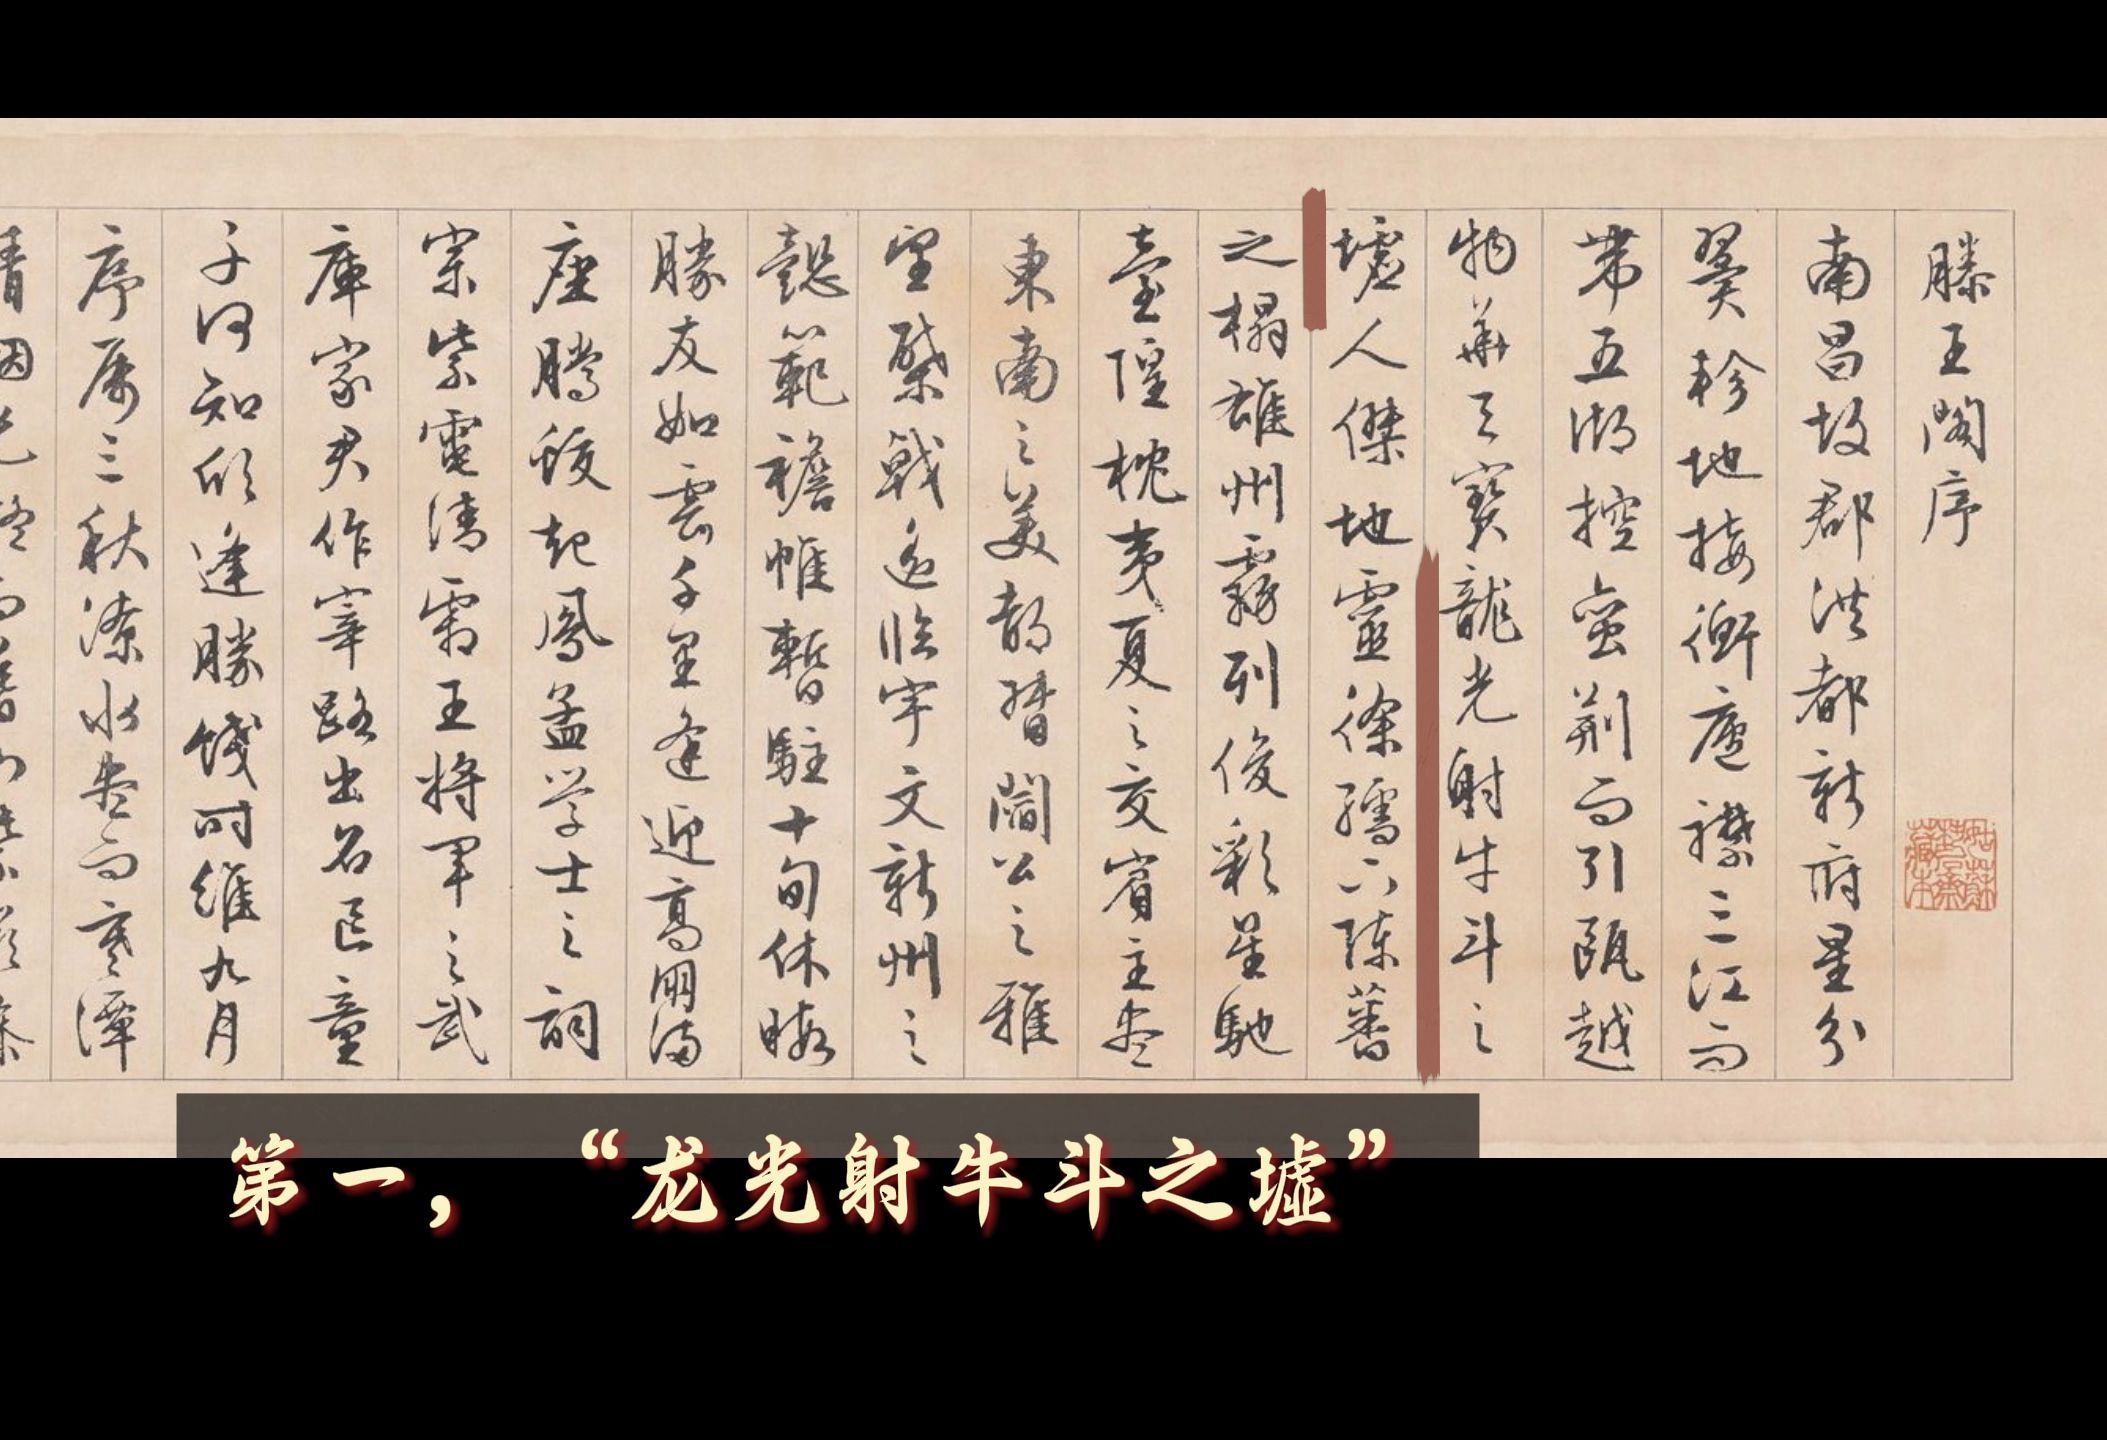 滕王閣序
南昌故郡洪都新府星分
翼軫地接衡廬襟三江而
帶五湖控蠻荊而引甌越
物華天寶龍光射牛斗之
墟人傑地靈徐孺下陳蕃
之榻雄州霧列俊彩星馳
臺隍枕夷夏之交賓主盡
東南之美都督閻公之雅
望棨戟遙臨宇文新州之
懿範襜帷暫駐十旬休暇
勝友如雲千里逢迎高朋滿
座騰蛟起鳳孟学士之詞
宗紫電清霜王將軍之武
庫家君作宰路出名區童
子何知躬逢勝餞时維九月
序属三秋潦水盡而寒潭
第一，“龙光射牛斗之墟”